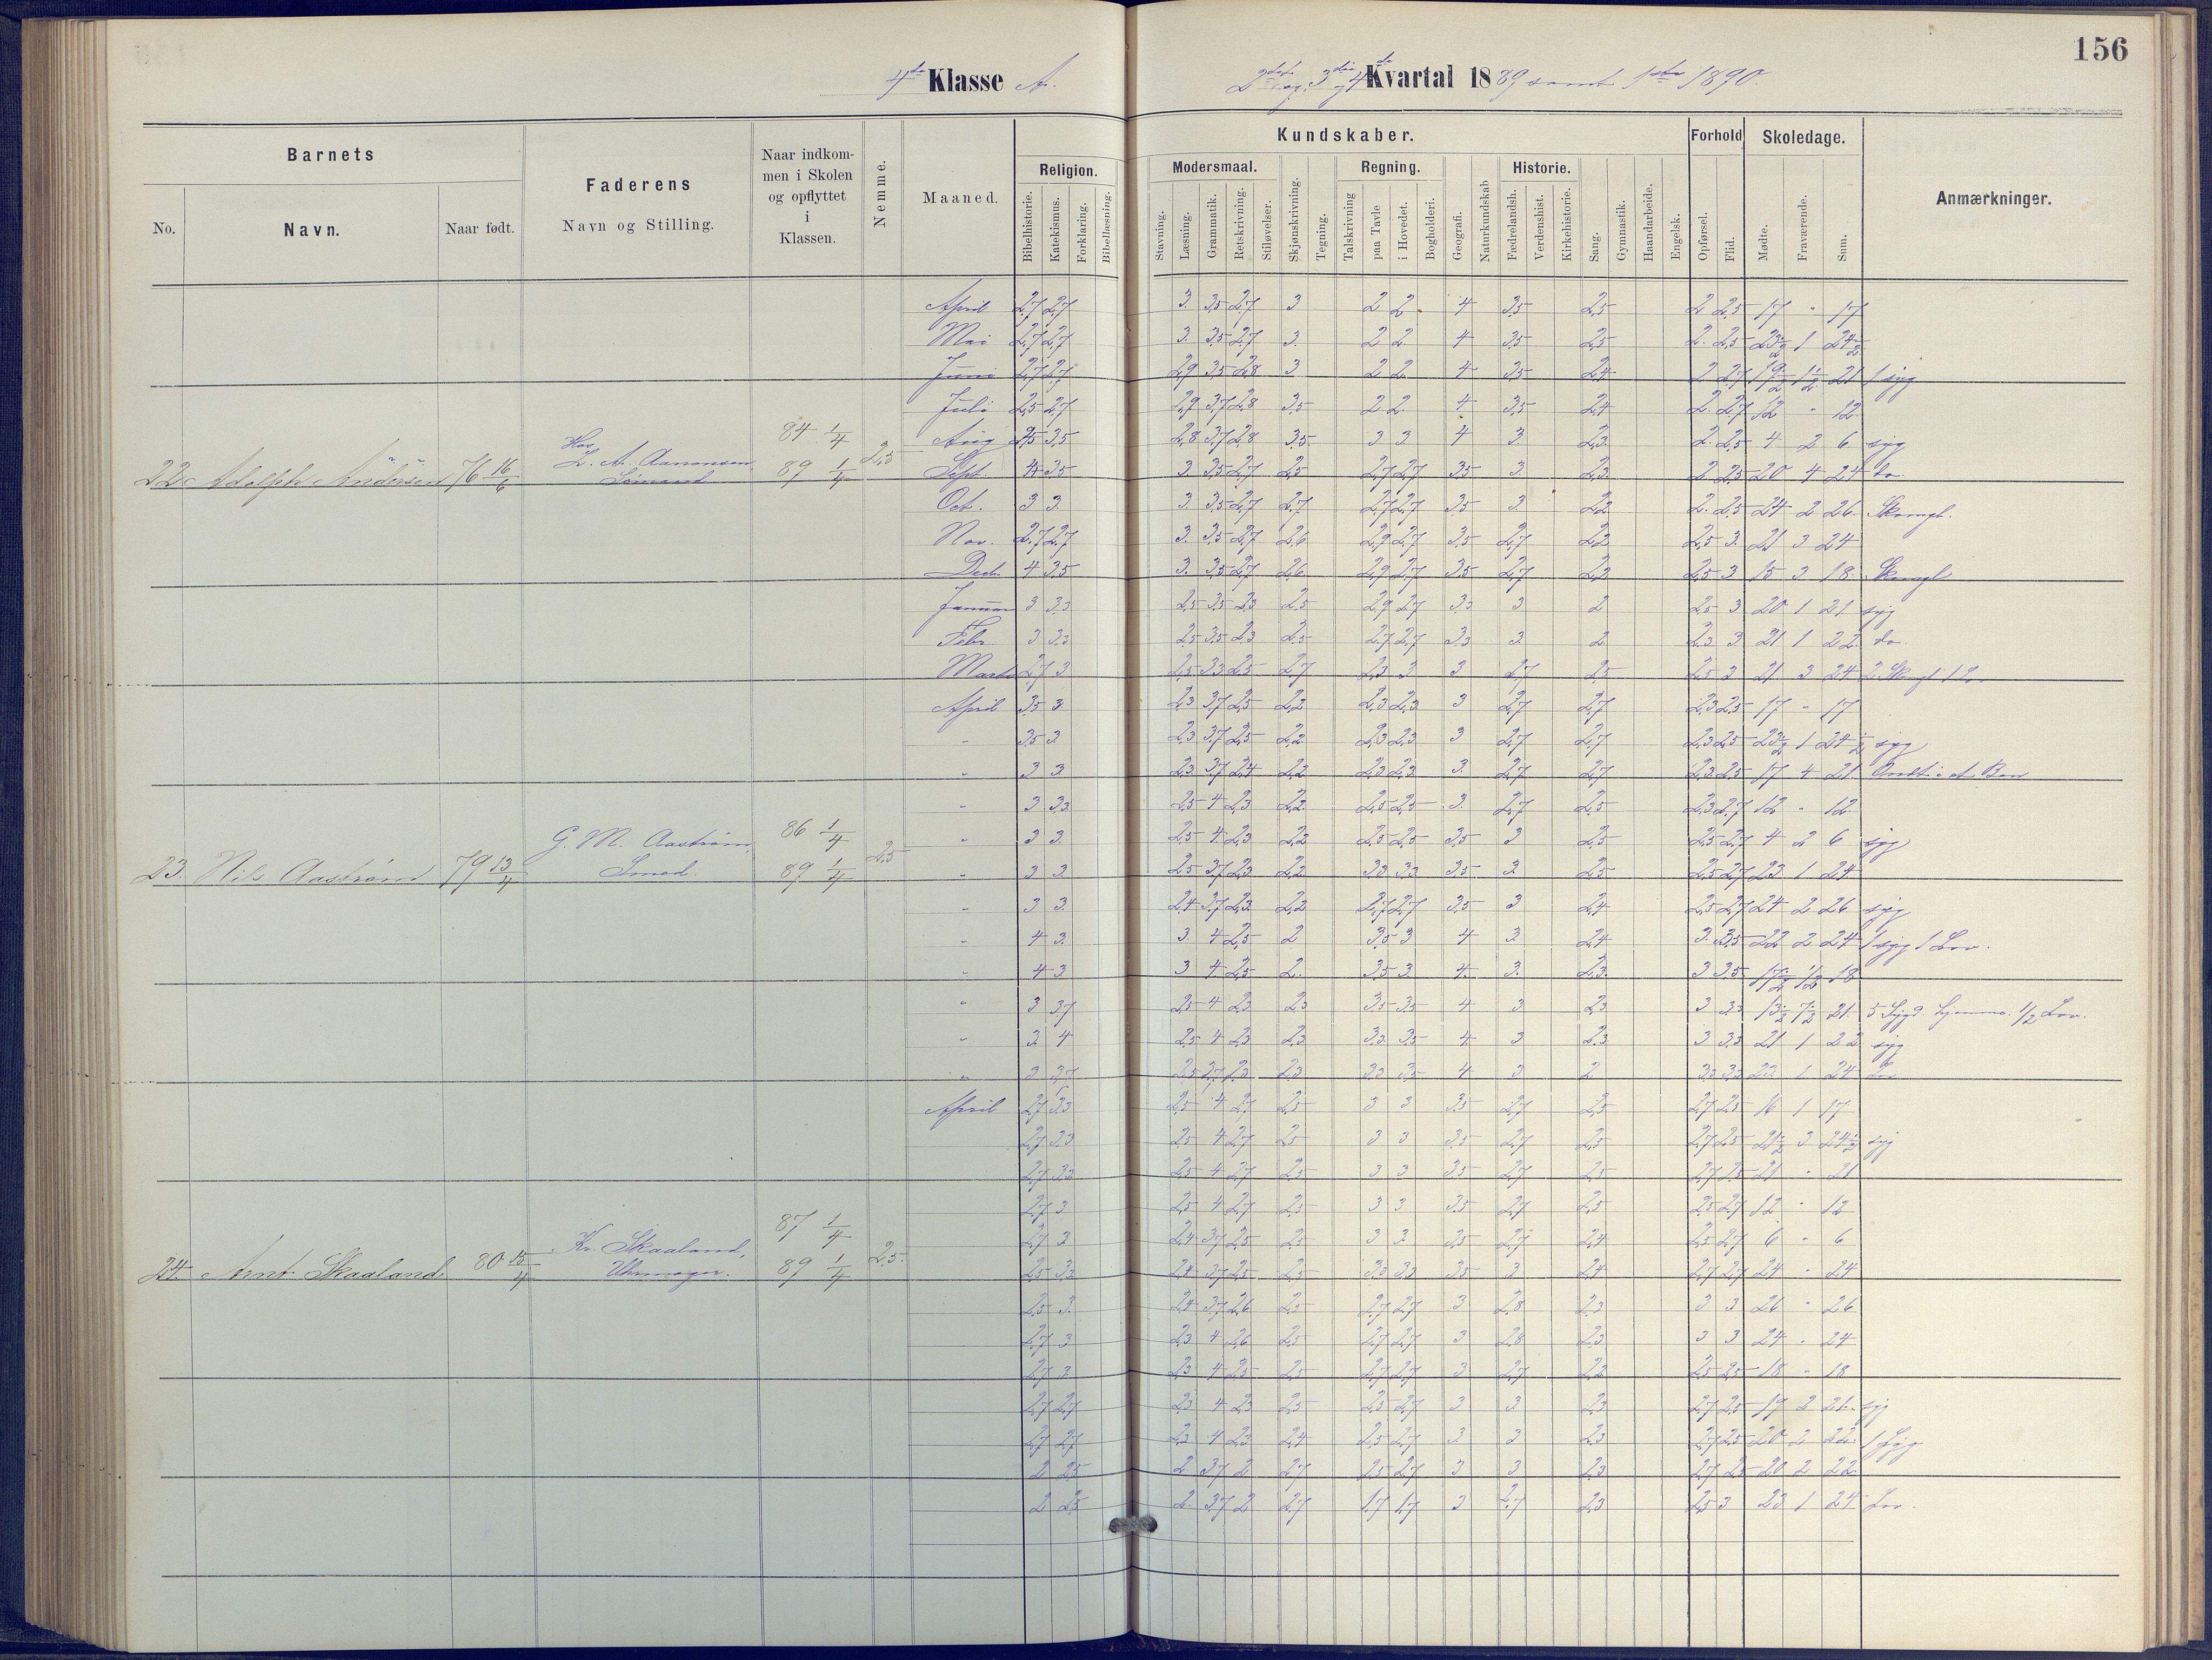 156
4de Klasse A.
2det og 3die og 4de Kvartal 1889 samt 1ste 1890.
Barnets
No.
Navn.
Naar født.
Faderens
Navn og Stilling.
Naar indkom-
men i Skolen
og opflyttet
i
Klassen.
Nemme.
Maaned.
Kundskaber.
Religion.
Bibelhistorie.
Katekismus.
Forklaring.
Bibellæsning.
Modersmaal.
Stavning.
Læsning.
Grammatik.
Retskrivning.
Stiløvelser.
Skjønskrivning.
Tegning.
Regning.
Talskrivning
paa Tavle
i Hovedet.
Bogholderi.
Geografi.
Naturkundskab
Historie.
Fædrelandsh.
Verdenshist.
Kirkehistorie.
Sang.
Gymnastik.
Haandarbeide.
Engelsk.
Forhold
Opførsel.
Flid.
Skoledage.
Mødte.
Fraværende.
Sum.
Anmærkninger.
April 2,7 2,7 3. 3,5 2,7 3 2 2 4 3,5 2,5 2 2,5 17 " 17
Mai 2,7 2,7 3. 3,5 2,7 3. 2 2 4 3,5 2,5 2. 2,5 23 1/2 1 24 1/2
Juni 2,7 2,7 2,9 3,5 2,8 3 2 2 4 3,5 2,4 2 2,7 19 1/2 1 1/2 21 1 syg
Juli 2,5 2,7 2,9 3,7 2,8 3,5 2 2 4 3,5 2,4 2. 2,7 12 " 12
Aug 3,5 2,8 3,7 2,8 3,5 3 3 4 3 2,3 2. 2,5 4 2 6 syg
22 Adolph Andersen 76 16/6 Hos L. A. Aanonsen Sømand 84 1/4 89 1/4 2,5
Sept. 4 3,5 3 3,5 2,7 2,5 2,7 2,7 3,5 3 2,3 2 2,5 20 4 24 do
Oct. 3 3 3. 3,5 2,7 2,7 2,7 2,7 3,5 3 2,2 2. 2,5 24 2 26 Skomgl.
Nov. 2,7 2,7 3. 3,5 2,7 2,6 2,9 2,7 3,5 2,7 2,2 2,5 3. 21 3 24
Dec. 4 3,5 3. 3,5 2,7 2,6 2,9 2,7 3,5 2,7 2,2 2,5 3 15 3 18 Skmgl
Januar 3 3,3 2,5 3,5 2,3 2,5 2,9 2,7 3,3 3 2 2,5 3 20 1 21 syg
Febr 3 3,3 2,5 3,5 2,3 2,5 2,7 2,7 3,3 3 2 2,3 3 21 1 22 do
Marts 2,7 3 2,5 3,3 2,5 2,7 2,3 3 3 2,7 2,5 2,5 3 21 3 24 2 Skmgl 1 Lov
April 3,5 3 2,3 3,7 2,5 2,2 2,3 2,3 3 2,7 2,7 2,3 2,5 17 " 17
" 3,5 3 2,3 3,7 2,5 2,2 2,3 2,3 3 2,7 2,7 2,3 2,5 23 1/2 1 24 1/2 syg
" 3 3 2,3 3,7 2,4 2,2 2,3 2,3 3. 2,7 2,7 2,3 2,5 17 4 21
" 3 3,3 2,5 4 2,3 2,2 2,5 2,5 3. 2,7 2,5 2,3 2,7 12 " 12
" 3 3. 2,5 4 2,3 2,2 2,5 2,5 3,5 3 2,5 2,5 2,7 4 2 6 syg
23. Nils Aastrøm 79 13/4 G. M. Aastrøm, Smed. 86 1/4 89 1/4 2,5
" 3 3 2,5 3,7 2,3 2,2 3,3 3,3 3,5 3 2,5 2,5 2,7 23 1 24
" 3 3. 2,4 3,7 2,3 2,2 2,7 2,7 3,5 3 2,4 2,5 2,7 24 2 26 syg
" 4 3. 3. 4 2,5 2 3,5 3 4 3 2,4 3. 3,5 22 2 24 1 syg 1 Lov.
" 4 3. 3 4 2,5 2. 3,5 3. 4. 3. 2,3 3 3,5 17 1/2 1/2 18
" 3 3,7 2,5 4 2,3 2,3 3,5 3,5 4 3 2,3 3 3,3 13 1/2 7 1/2 21 5 Sygd. hjemme. 1/2 Lov.
" 3. 4 2,5 4 2,3 2,3 3,3 3,5 4 3 2,3 3 3,3 21 1 22 syg
" 3 3,7 2,5 3,7 2,3 2,3 3,3 3,5 4 3 2 3,3 3,3 23 1 24 Lov
April 2,7 3,3 2,5 4 2,7 2,5 3 3 3,5 2,7 2,5 2,7 2,5 16 1 17
2,7 3,3 2,5 4 2,7 2,5 3 3 3,5 2,7 2,5 2,7 2,5 21 1/2 3 24 1/2 syg
2,7 3,3 2,5 4 2,7 2,5 3 3 3,5 2,7 2,5 2,7 2,5 21 " 21
2,7 3 2,5 4 2,7 2,5 3 3 3,5 2,7 2,5 2,5 2,7 12 " 12
2,7 3 2,4 3,7 2,5 2,5 3 3 3,5 2,7 2,4 2,5 2,7 6 " 6
24. Arnt Skaaland 80 15/4 Kr. Skaaland, Uhrmager. 87 1/4 89 1/4 2,5.
2,5 3,3 2,4 3,7 2,5 2,5 3,3 3,3 3,5 3 2,4 2,7 2,7 24 " 24
2,5 3. 2,4 3,7 2,6 2,5 2,7 2,7 3 2,8 2,3 3 3 26 " 26
2,7 3 2,3 4 2,6 2,5 2,7 2,7 3 2,8 2,3 3 3 24 " 24
2,7 3 2,3 4 2,5 2,5 2,7 2,7 3 2,7 2,2 2,5 2,5 18 " 18
2,7 2,7 2,3 4 2,3 2,5 2,5 2,7 3 3 2,3 2,7 2,5 19 2 21 syg
2,7 2,7 2,3 4 2,3 2,4 2,5 2,7 3 3 2,3 2,7 2,5 20 2 22 1 syg
2 2,5 2 3,7 2 2,7 2,5 2,7 3 3 2,3 2,7 2,5 20 2 22
2 2,5 2 3,7 2 2,7 1,7 1,7 3 2,7 2,3 2,5 3 23 1 24 Lov.